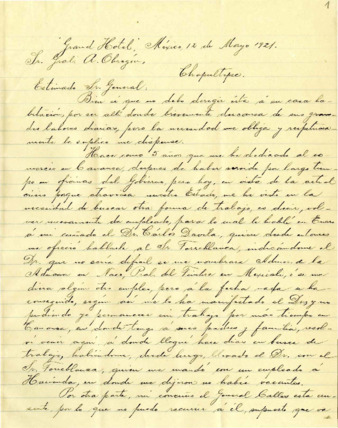 1
Grand Hotel, México 12 de Mayo 1921.
Sr. Gral. A. Obregón,
Chapultepec.
Estimado Sr. General.
Bien sé que no debo dirigir ésta á su casa ha-
bitación, por ser allí donde brevemente descansa de sus gran-
des labores diarias, pero la necesidad me obliga y respetuosa-
mente le suplico me dispense.
Hace como 3 años que me he dedicado al co-
mercio en Cananea, después de haber servido por largo tiem-
po en oficinas del Gobierno, pero hoy, en vista de la actual
crisis porque atraviesa nuestro Estado, me he visto en la
necesidad de buscar otra forma de trabajo, es decir, vol-
ver nuevamente de empleado, para lo cual le hablé en
á mi cuñado el Dr. Carlos Dávila, quien desde entonces
me ofreció hablarle al Sr. Torreblanca, indicándome el
Dr. que no sería difícil se me nombrara Admor. de la
Aduana en Naco, del Timbre en Mexicali, ó á me
diera algún otro empleo, pero á la fecha nada se ha
conseguido, según así me lo ha manifestado el Dr. y no
pudiendo ya permanecer sin trabajo por más tiempo en
Cananea, en donde tengo á mis padres y familia, resol-
ví venir aquí á donde llegué hace días en busca de
trabajo, habiéndome, desde luego, llevado el Dr. con el
Sr. Torreblanca, quien me mandó con un empleado á
Hacienda, en donde me dijeron no había vacantes.
Por otra parte, mi concuño el General Calles está au-
sente, por lo que no puedo recurrir á él, supuesto que va